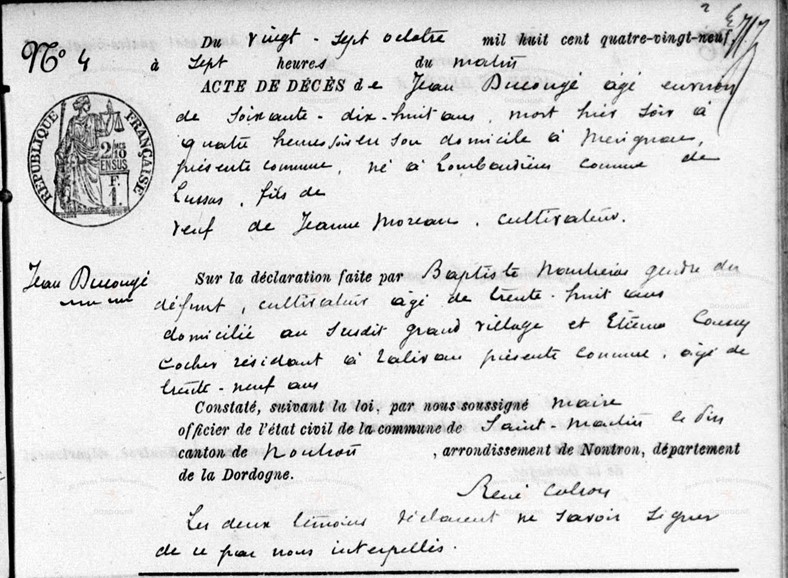 Nº 4
Du vingt-sept octobre mil huit cent quatre-vingt-neuf
à sept heures du matin
ACTE DE DÉCÈS de Jean Ducongé âgé environ
de soixante-dix-huit ans, mort hier soir à
quatre heures soir en son domicile à Merignac,
présente commune, né à Lombardières commune de
Lussas, fils de
veuf de Jeanne Moreau, cultivateur.
RÉPUBLIQUE FRANÇAISE
2/10 EN SUS
F. 1.
Jean Ducongé
Sur la déclaration faite par Baptiste gendre du
défunt, cultivateur âgé de trente-huit ans
domicilié au susdit grand village et Etienne
Cocher résidant à présente commune, âgé de
trente-neuf ans
Constaté, suivant la loi, par nous soussigné maire
officier de l'état civil de la commune de Saint-Martin le Pin
canton de Nontron, arrondissement de Nontron, département
de la Dordogne.
René
Les deux témoins déclarent ne savoir signer
de ce par nous interpellés.